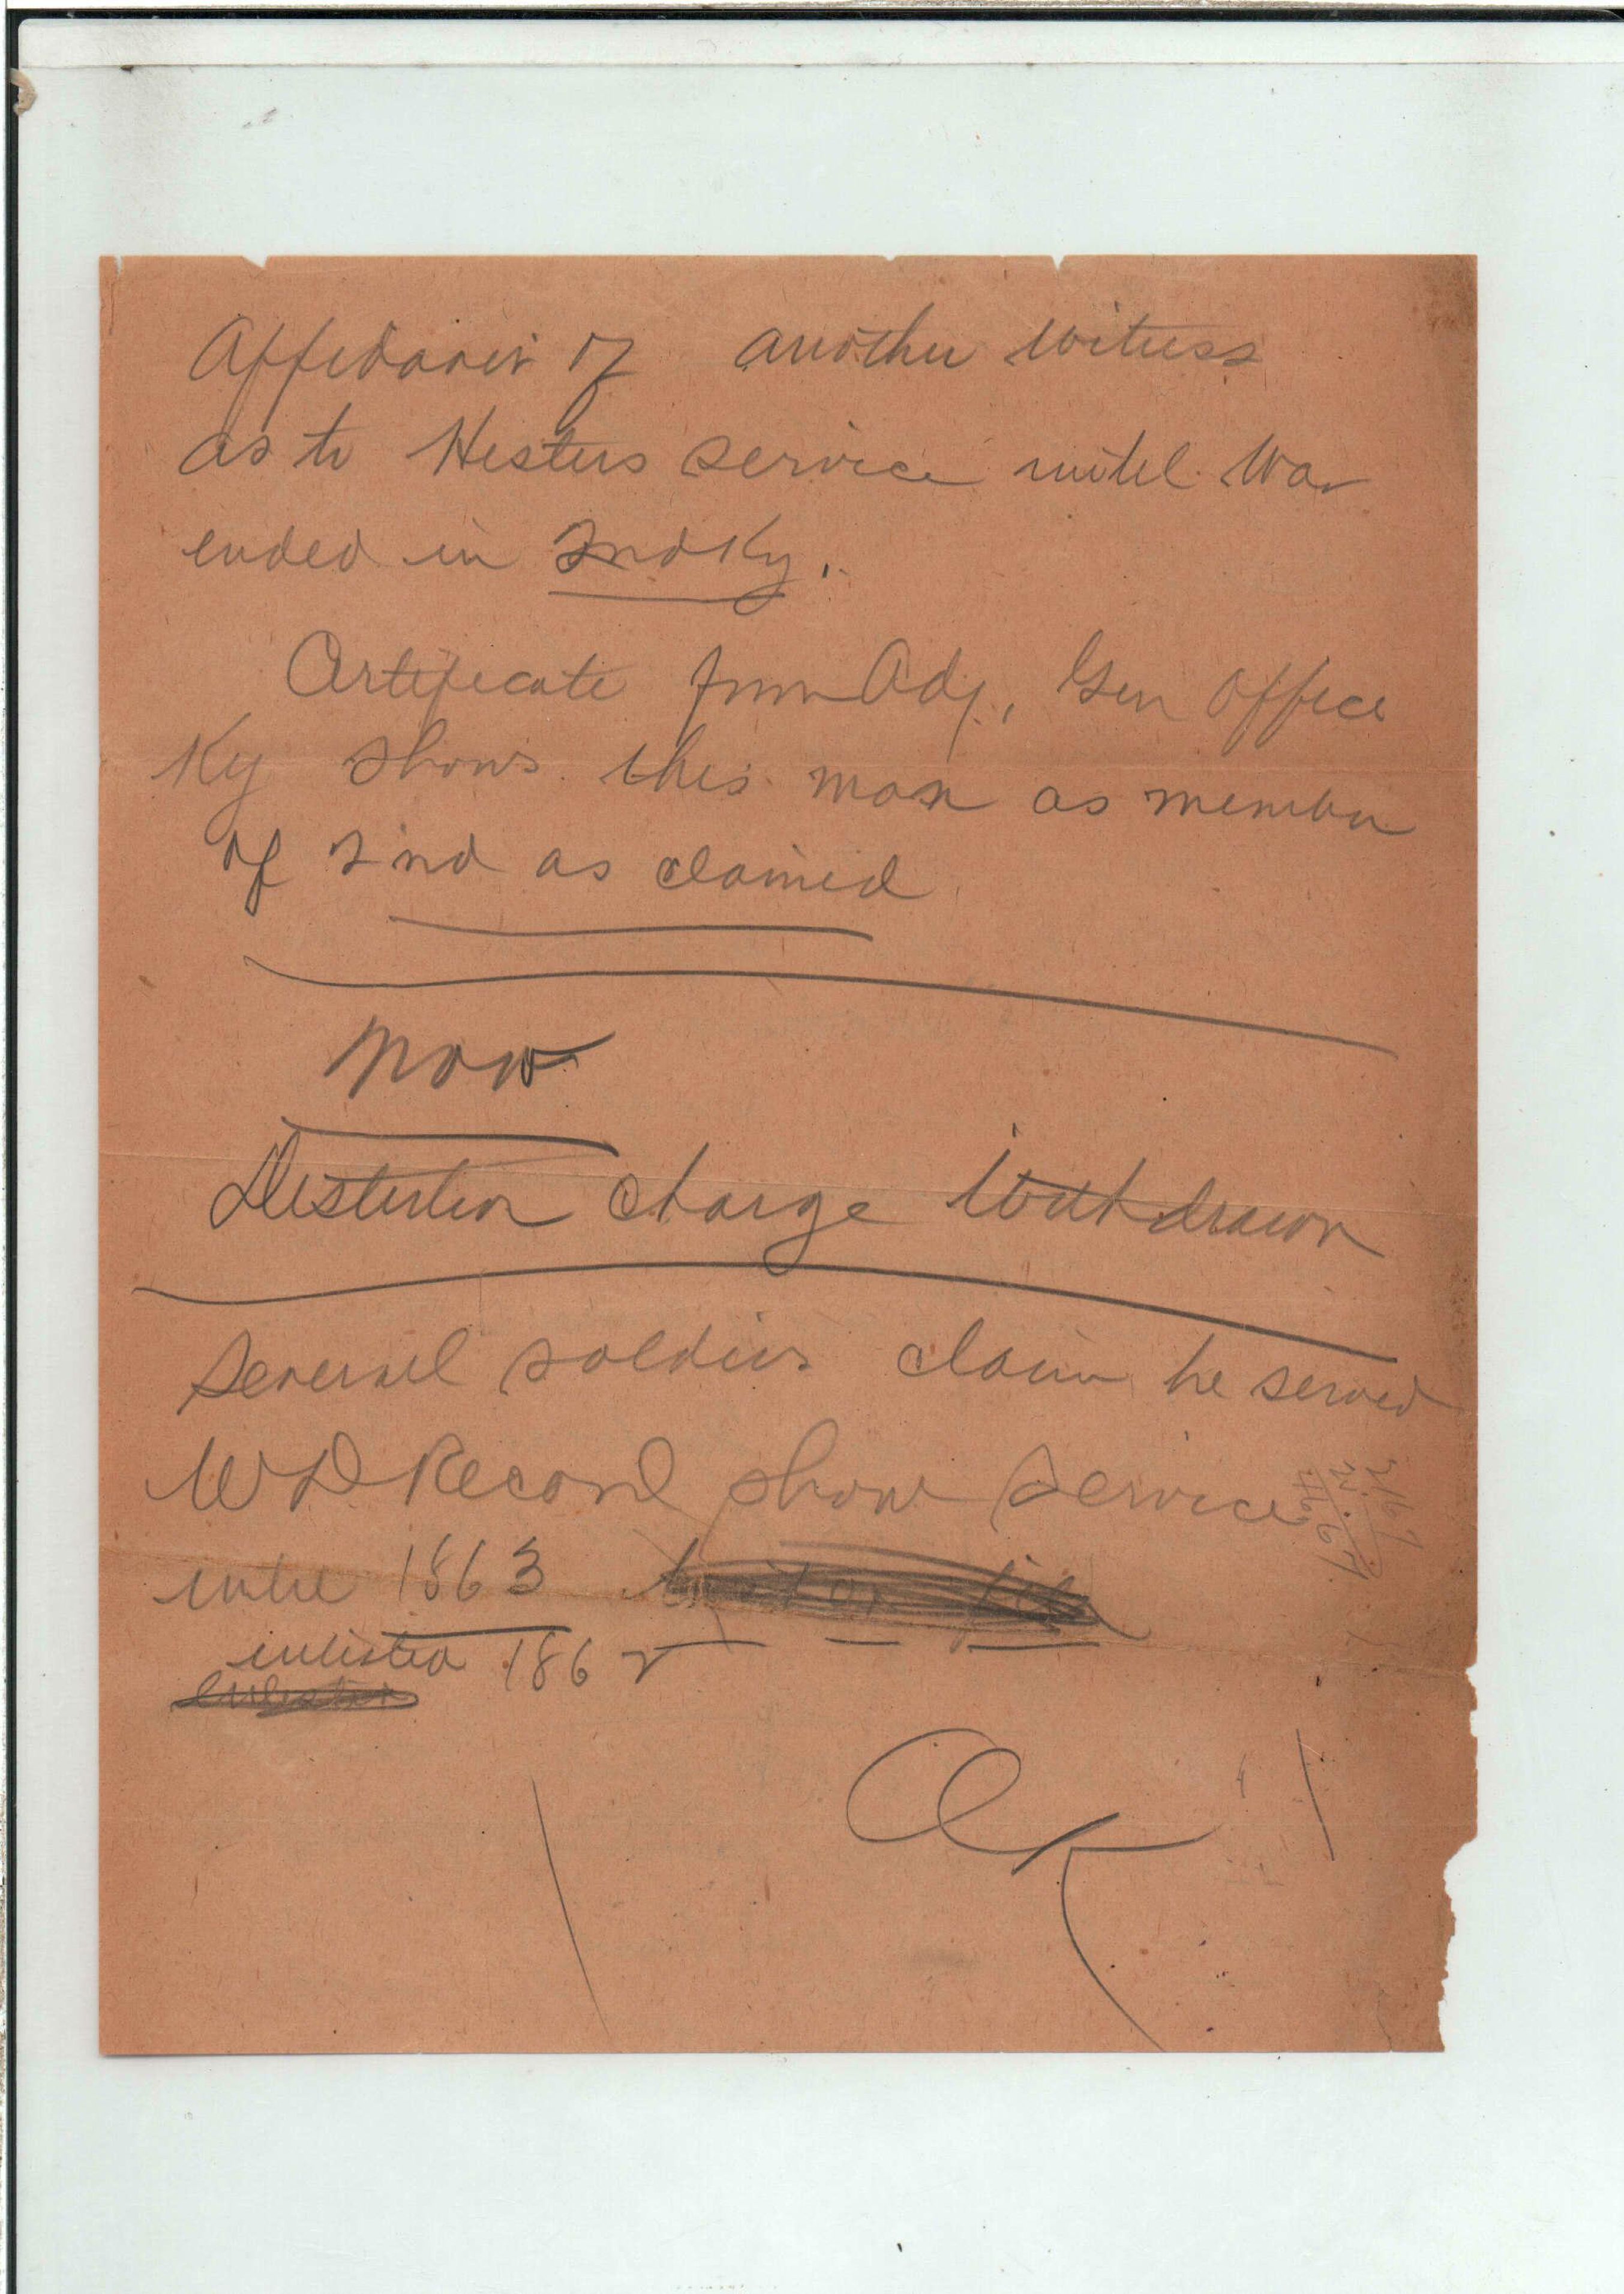 Affidavit of another witness
as to Hesters service until War
ended in 2nd Ky.
Certificate from Adj, Gen Office
Ky shows this man as member
of 2nd as claimed
Now
Desertion charge Withdrawn
Several soldiers claim he served
W D Record show service
until 1863
enlisted 1862
OK